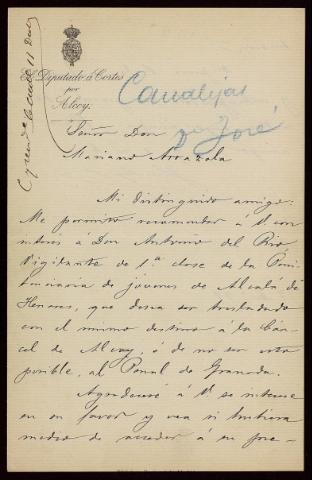 El Diputado á Cortes
por
Alcoy.
Canalejas
José
Señor Don
Mariano Arrazola
Mi distinguido amigo:
Me permito recomendar á V. con
interés á Don Antonio del Rio,
Vigilante de 1ª clase de la Peni-
tenciaria de jóvenes de Alcalá de
Henares, que desea ser trasladado
con el mismo destino á la Cár-
cel de Alcoy, ó de no ser esto
posible, al Penal de Granada.
Agradeceré á V. se interese
en su favor y vea si hubiera
medio de acceder á su pre-